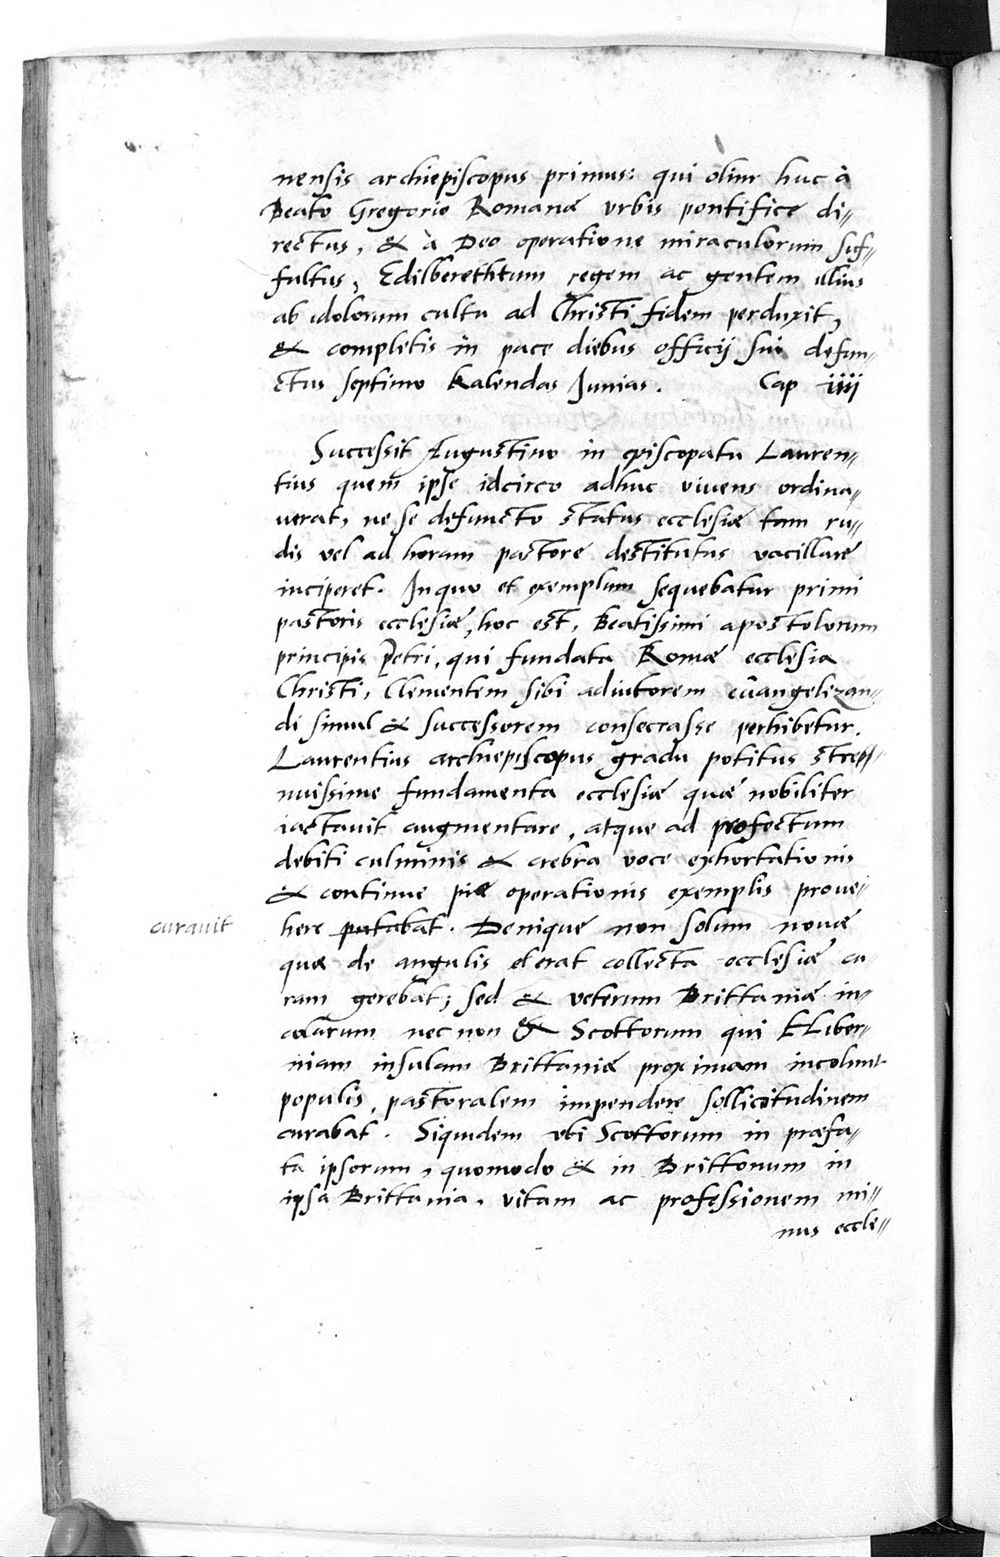 nensis archiepiscopus primus: qui olim huc à
Beato Gregorio Romanæ vrbis pontifice di〃
rectus, & à Deo operatione miraculorum suf〃
fultus, Edilberethtum regem ac gentem illius
ab idolorum cultu ad Christi fidem perduxit,
& completis in pace diebus officij sui defun〃
ctus septimo Kalendas Junias. Cap iiij
Successit Augustino in episcopatu Lauren〃
tius quem ipse idcirco adhuc viuens ordina〃
uerat, ne se defuncto status ecclesiæ tam ru〃
dis vel ad horam pastore destitutus vacillare
inciperet. In quo et exemplum sequebatur primi
pastoris ecclesiæ, hoc est, Beatissimi apostolorum
principis Petri, qui fundata Romæ ecclesia
Christi, Clementem sibi adiutorem euangelizan〃
di simul & successorem consecrasse perhibetur.
Laurentius archiepiscopus gradu potitus stre〃
nuissime fundamenta ecclesiæ quæ nobiliter
iactauit augmentare, atque ad profectum
debiti culminis & crebra voce exhortationis
& continuæ piæ operationis exemplis proue〃
curauit here putabat. Denique non solum nouæ
quæ de angulis erat collecta ecclesiæ cu〃
ram gerebat; sed & veterum Brittaniæ in〃
colarum nec non & Scottorum qui Hiber〃
niam insulam Brittaniæ proximam incolunt
populis, pastoralem impendere sollicitudinem
curabat. Siquidem vbi Scottorum in præfa〃
ta ipsorum, quomodo & in Brittonum in
ipsa Brittania, vitam ac professionem mi〃
nus eccle〃